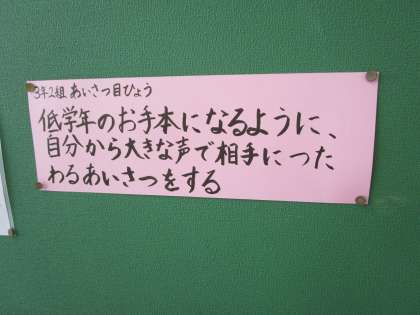 3年2組 あいさつ目ひょう
低学年のお手本になるように、
自分から大きな声で相手につた
わるあいさつをする